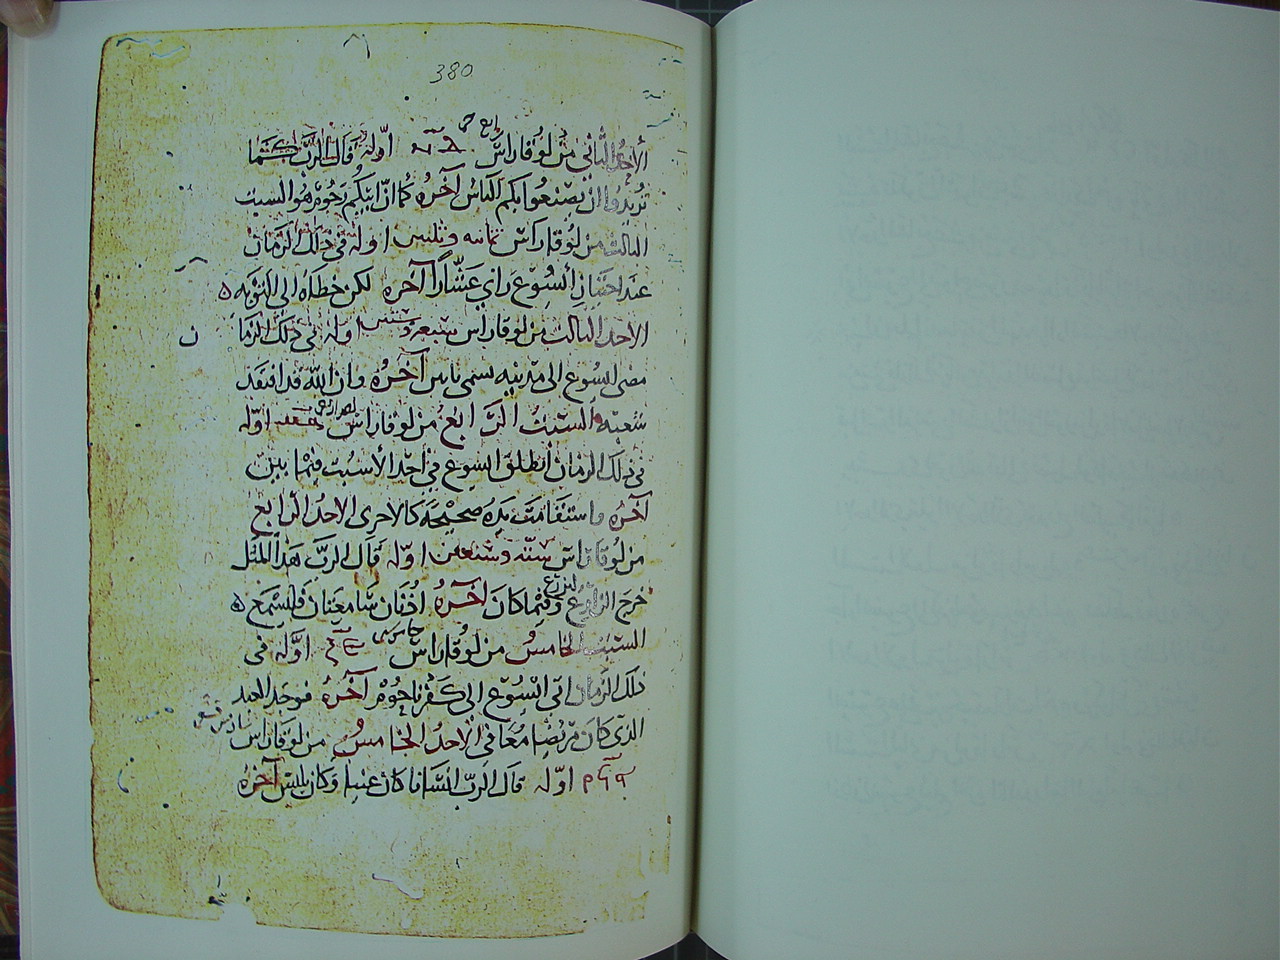 380
الاحد الثاني من لوقا راس اوله قال الرب كما
تريدوا ان يصنعوا بكم الناس آخره كما ان ابيكم رحوم هو السبت
الثالث من لوقا راس ثمانيه وثلثين اوله في ذلك الزمان
عند اجتياز ايسوع راي عشّارًا آخره لكن خطاه الى التوبه ه
الاحد الثالث من لوقا راس سبعه وستين اوله في ذلك الزما ن
مضى ايسوع الى مدينه يسمى نايين آخره وان الله قد افتقد
شعبه السبت الرابع من لوقا راس اوله
في ذلك الزمان أنطلق ايسوع في احد الأسبت فيما بين
آخره واستقامت يده صحيحة كالاخرى الاحد الرابع
من لوقا راس سته وسبعين اوله قال الرب هذا المثل
خرج الزارع ليزرع وفيما كان آخره اذنان سامعتان فليسمع ه
السبت الخامس من لوقا راس اوّله في
ذلك الزمان اتى ايسوع الى كفرناحوم آخره فوجد العبد
الذي كان مريضا معافى الاحد الخامس من لوقا راس
اوله قال الرب انسانا كان غنيا وكان يلبس آخره